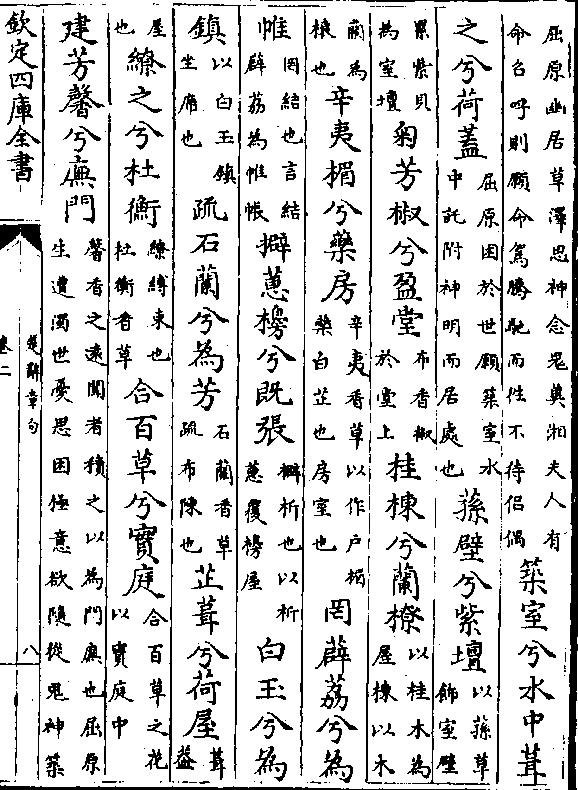 屈原幽居草澤思神念鬼冀湘夫人有
命召呼則願命駕騰馳而往不待侶偶
築室兮水中葺
之兮荷蓋
屈原困於世願築室水
中託附神明而居處也
蓀壁兮紫壇
以蓀草
飾室壁
累紫貝
為室壇
菊芳椒兮盈堂
布香椒
於堂上
桂棟兮蘭橑
以桂木為
屋棟以木
蘭為
榱也
辛夷楣兮藥房
辛夷香草以作戶楣
藥白芷也房室也
罔薜荔兮為
帷
罔結也言結
薜荔為帷帳
擗蕙櫋兮既張
擗析也以析
蕙覆櫋屋
白玉兮為
鎮
以白玉鎮
坐席也
疏石蘭兮為芳
石蘭香草
疏布陳也
芷葺兮荷屋
葺
蓋
屋
也
繚之兮杜衡
繚縛束也
杜衡香草
合百草兮實庭
合百草之花
以實庭中
建芳馨兮廡門
馨香之遠聞者積之以為門廡也屈原
生遭濁世憂思困極意欲隨從鬼神築
欽定四庫全書
楚辭章句
卷二
八